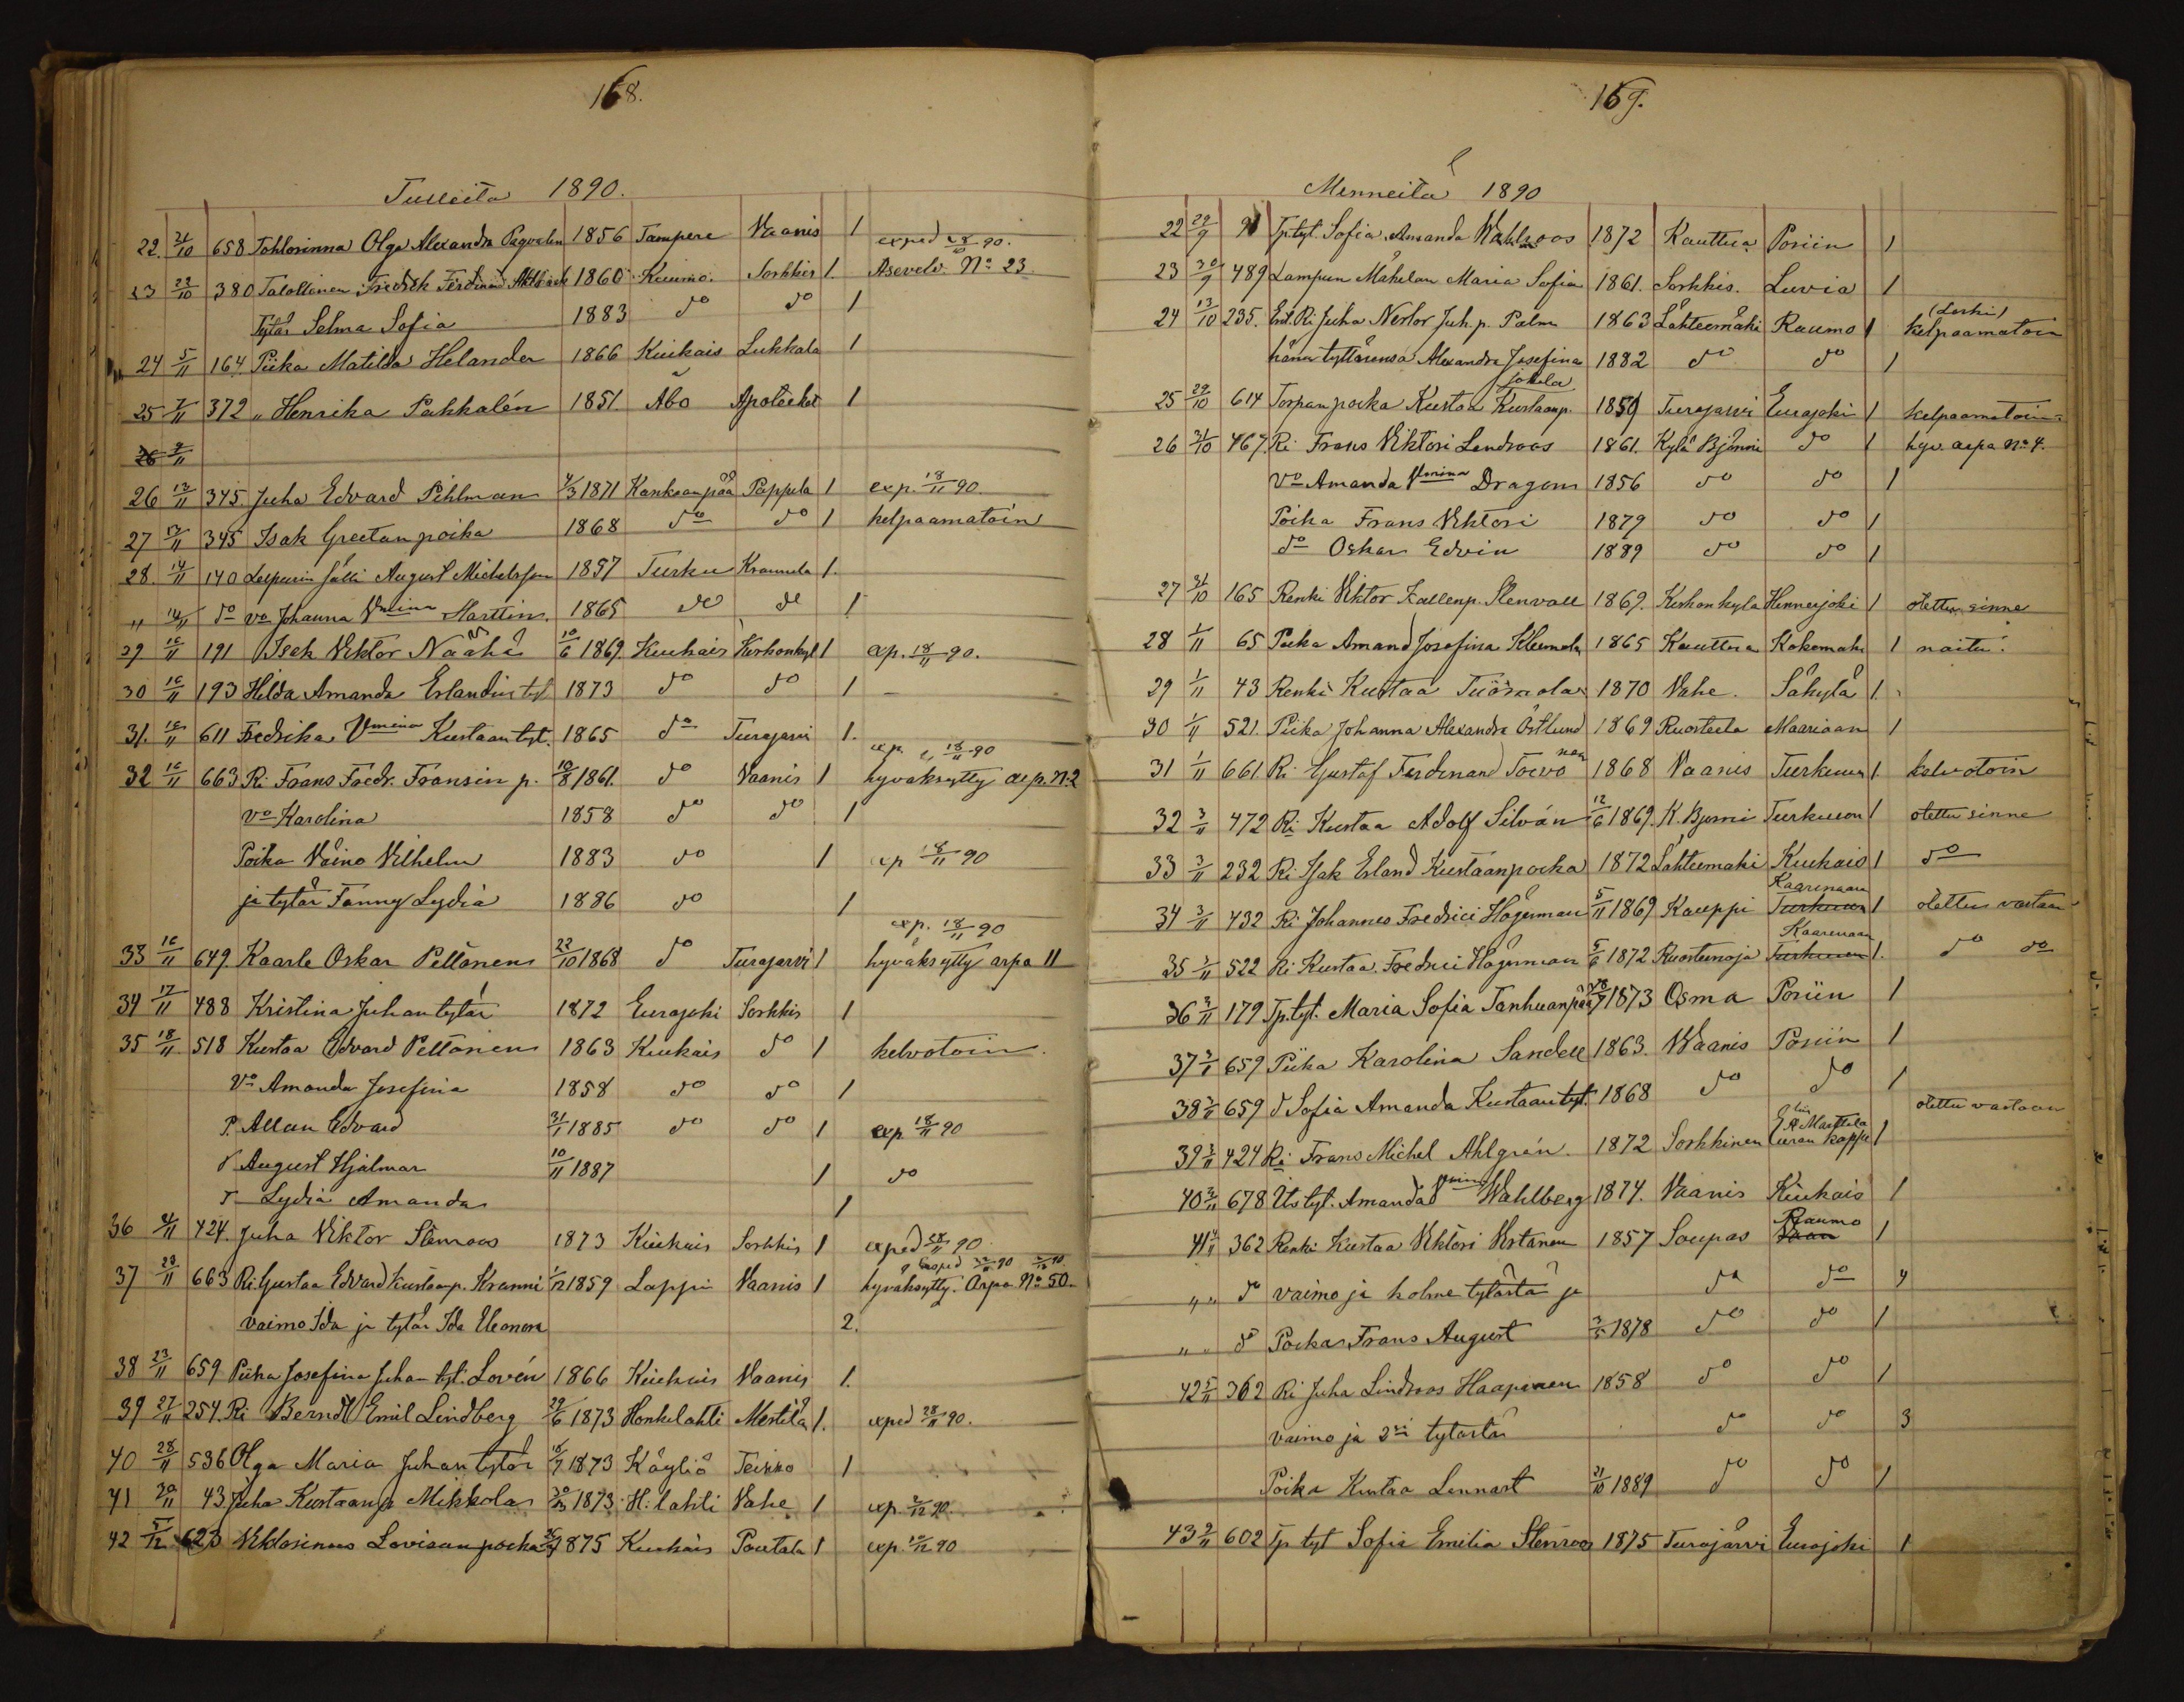 168.
Tulleita 1890.
22. 21/10 658 Tohtorinna Olga Alexandra 1856 Tampere Vaanis 1 exped 28/10 90.
23 22/10 380 Talollinen Fredrik Ferdinand 1860 Kiumo. Sorkkis 1. Asevelv. No 23.
Tytär Selma Sofia 1883 do do 1
24 5/11 164 Piika Matilda Helander 1866 Kiukais Lukkala 1
25 7/11 372 „ Henrika Pahkalén 1851 Åbo Apoteeket 1
26
26 13/11 345. Juha Edvard Pihlman 1871 Kankaanpää Pappila 1 exp. 18/11 90.
27 13/11 345 Isak Greetanpoika 1868 do do 1 kelpaamatoin
28. 14/11 140 Leipurin sälli August Michelsson 1857 Turku Kraunula 1.
„ 14/11 do vo Johanna Vmina Marttin. 1865 do do 1
29 16/11 191 Isak Viktor Näähä 10/6 1869. Kiukais Kirkonkyl 1 exp. 18/11 90.
30 16/11 193 Hilda Amanda Erlandintyt 1873 do do 1 –
31. 16/11 611 Fredrika Vmina Kustaantyt. 1865 do Turajarvi 1.
32 16/11 663 Ri Frans Fredr. Fransin p. 10/8 1861. do Vaanis 1 exp. 18/11 90 hyväksytty arp. N:2
vo Karolina 1858 do do 1
Poika Väino Vilhelm 1883 do 1 exp 18/11 90
ja tytär Fanny Lydia 1886 do 1
33 16/11 649. Kaarle Oskar Peltonen 22/10 1868 do Turajarvi 1 exp. 18/11 90 hyväksytty arpa 11
34 17/11 488 Kristina Juhantytär 1872 Eurajoki Sorkkis 1
35 18/11. 518 Kustaa Edvard Peltonen 1863 Kiukais do 1 kelvotoin.
Vo Amanda Josefina 1858 do do 1
P. Allan Edvard 31/1 1885 do do 1 exp 18/11 90
d August Hjalmar 10/11 1887 1 do
T Lydia Amanda 1
36 21/11 424. Juha Viktor Stenroos 1873 Kiukais Sorkkis 1 exped 28/11 90.
37 23/11 663 Ri. Gustaa Edvard Kustaanp. Kranni 1/12 1859 Lappi Vaanis 1 hyväksytty. Arpa No 50.
vaimo Ida ja tytär Ida Eleonora 2.
38 23/11 659 Piika Josefina Juhan tyt. Lovén 1866 Kiukais Vaanis 1.
39 27/11 254. Ri Berndt Emil Lindberg 29/6 1873 Honkilahti Mestilä 1. exped 28/11 90.
40 28/11 536 Olga Maria Juhantytär 16/7 1873 Köyliö Teikko 1
41 30/11 43 Juha Kustaanp. Mikkola 1873 H:lahti Vahe 1 exp. 2/12 90.
42 5/12 623 Viktorinus Lovisanpoika 1875 Kiukais Poutala 1 exp. 10/12 90
169.
Menneitä 1890
22 29/9 91 Tptyt. Sofia Amanda Wahlroos 1872 Kauttua Poriin 1
23 30/9 489 Lampun Mäkelän Maria Sofia 1861. Sorkkis. Luvia 1
24 13/10 235. Ent. Ri Juha Nestor Juh. p. Palm 1863 Lähteemäki Raumo 1 (Leski) kelpaamatoin
hänen tyttärensä Alexandra Josefina 1882 do do 1
25 29/10 614 Torpan poika Kustaa Kustaanp. Jokela 1859 Turajarvi Eurajoki 1 kelpaamatoin
26 31/10 467. Ri Frans Viktori Lendroos 1861. Kylä Björni do 1 hyv. arpa No 4.
vo Amanda Vmina Dragon 1856 do do 1
Poika Frans Viktori 1879 do do 1
do Oskar Edvin 1889 do do 1
27 31/10 165 Renki Viktor Kallenp. Stenvall 1869. Kirkonkyla Hinnerjoki 1 otettu sinne
28 1/11 65 Piika Amanda Josefina Kleemola 1865 Kauttua Kokemäki 1 naitu.
29 1/11 43 Renki Kustaa Tuorsola 1870 Vahe. Säkylä 1.
30 1/11 521. Piika Johanna Alexandra Östlund 1869 Ruosteela Maariaan 1
31 1/11 661. Ri Gustaf Ferdinand Toivonen 1868 Vaanis Turkuun 1. kelvotoin
32 3/11 472 Ri Kustaa Adolf Silván 12/6 1869. K. Bjorni Turkuun 1 otettu sinne
33 3/11 232 Ri Isak Erland Kustaanpoika 1872 Lähteemäki Kiukais 1 do
34 3/11 432 Ri Johannes Fredrici Högerman 5/11 1869 Kauppi Turkuun Kaarinaan 1 otettu vastaan
35 3/11 522 Ri Kustaa Fredrici Högerman 5/6 1872 Ruostenoja Turkuun Kaarinaan 1. do do
36 3/11 179 Tp.tyt. Maria Sofia Tanhuanpää 1873 Osma Poriin 1
37 3/11 659 Piika Karolina Sandell 1863. Waanis Poriin 1
38 3/11 659 d Sofia Amanda Kustaantyt. 1868 do do 1
39 3/11 424 Ri Frans Michel Ahlgrén. 1872 Sorkkinen Euran kappe 1 otettu vastaan
40 3/11 678 Its tyt. Amanda Vmina Wahlberg 1874. Vaanis Kiukais 1
41 4/11 362 Renki Kustaa Viktori Virtanen 1857 Soupas Raumo 1
„ „ do vaimo ja kolme tytärtä ja do do 4
„ „ do Poika Frans August 3/5 1878 do do 1
42 5/11 362 Ri Juha Lindroos Haapanen 1858 do do 1
vaimo ja 2si tytärtä do do 3
Poika Kustaa Lennart 21/10 1889 do do 1
43 9/11 602 Tp tyt Sofia Emilia Stenroos 1875 Turajärvi Eurajoki 1